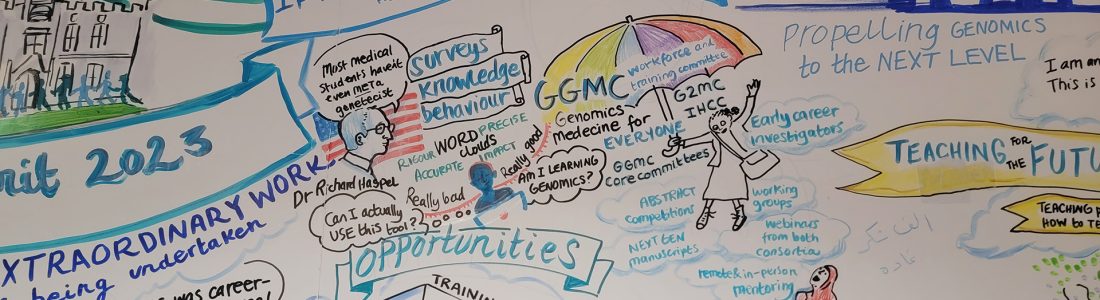 rit 2023
XTRAORDINARY WORK
being undertaken
was career-
Most medical
students haven't
even met a
genetecist
Dr Richard Haspel
surveys
knowledge
behaviour
RIGOUR
WORD
clouds
PRECISE
ACCURATE
IMPACT
Really good
Really bad
Can I actually
USE this tool?
Am I LEARNING
GENOMICS?
OPPORTUNITIES
TRAINING
GGMC
workforce and
training committee
Genomics
medecine for
EVERYONE
GGMC
core committees
ABSTRACT
competitions
NEXT GEN
manuscripts
G2MC
IHCC
Early career
investigators
working
groups
webinars
from both
consortia
remote & in-person
mentoring
PROPELLING GENOMICS
to the NEXT LEVEL
I am an
This is
TEACHING FOR THE FUTU
TEACHING
HOW to TE